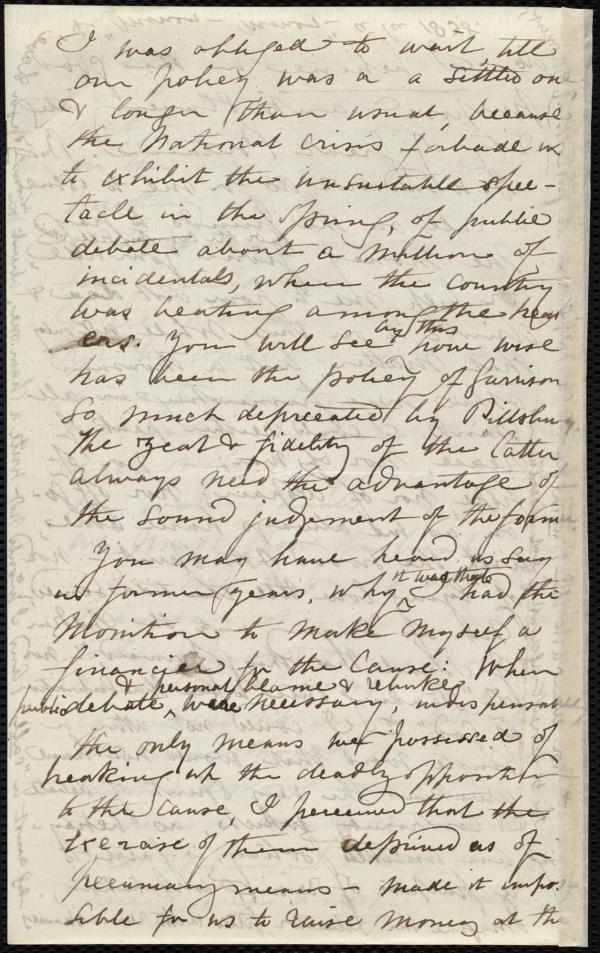 I was obliged to wait, till
our policy was a a settled one,
& longer than usual, because
the National crisis forbade us
to exhibit the unsuitable spec-
tacle in the spring, of public
debate about a million of
incidentals, when the country
was beating among the break
ers. You will see by this how wise
has been the policy of Garrison
so much deprecated by Pillsbury
The zeal & fidelity of the latter
always need the advantage of
the sound judgement of the former
You may have heard us say
in former years, why it was that I had the
Monition to make myself a
financier for the Cause: When
public debate, & personal blame & rebuke were necessary, indispensable
the only means we possessed of
breaking up the deadly opposition
to the cause, I perceived that the
exercise of them deprived us of
pecuniary means - made it impos-
sible for us to raise money at the